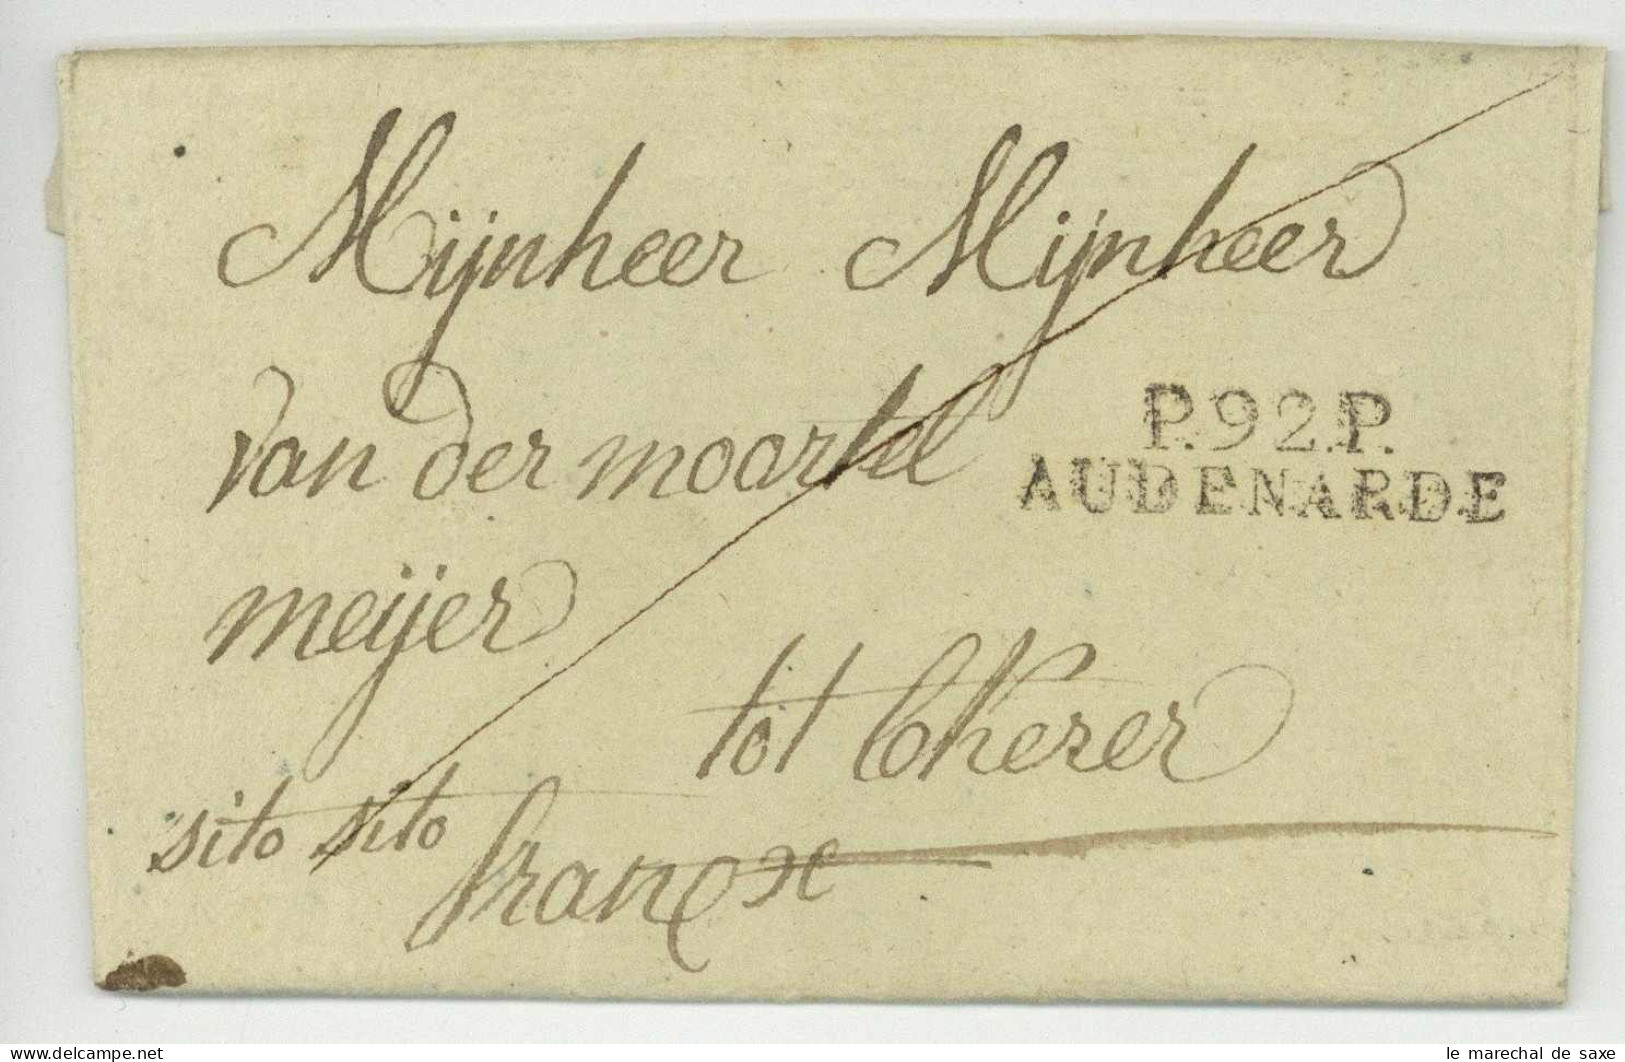 Mijnheer Mijnheer
van der moortel
P.92.P.
AUDENARDE
meijer
tot
sito sito
le marechal de saxe
www.delcampe.net